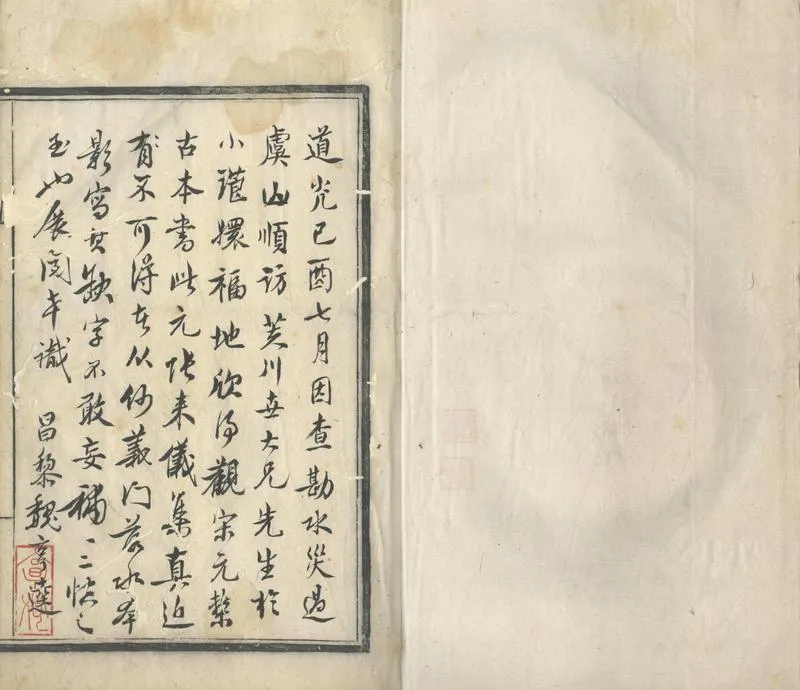 道光己酉七月因查勘水災過
虞山順訪芙川世大兄先生於
小瑯嬛福地欣得觀宋元槧
古本書此元張來儀集真近
有不可得从何義门落水本
影寫其缺字不敢妄補快之
至也展閱卒識 昌黎魏亨逵